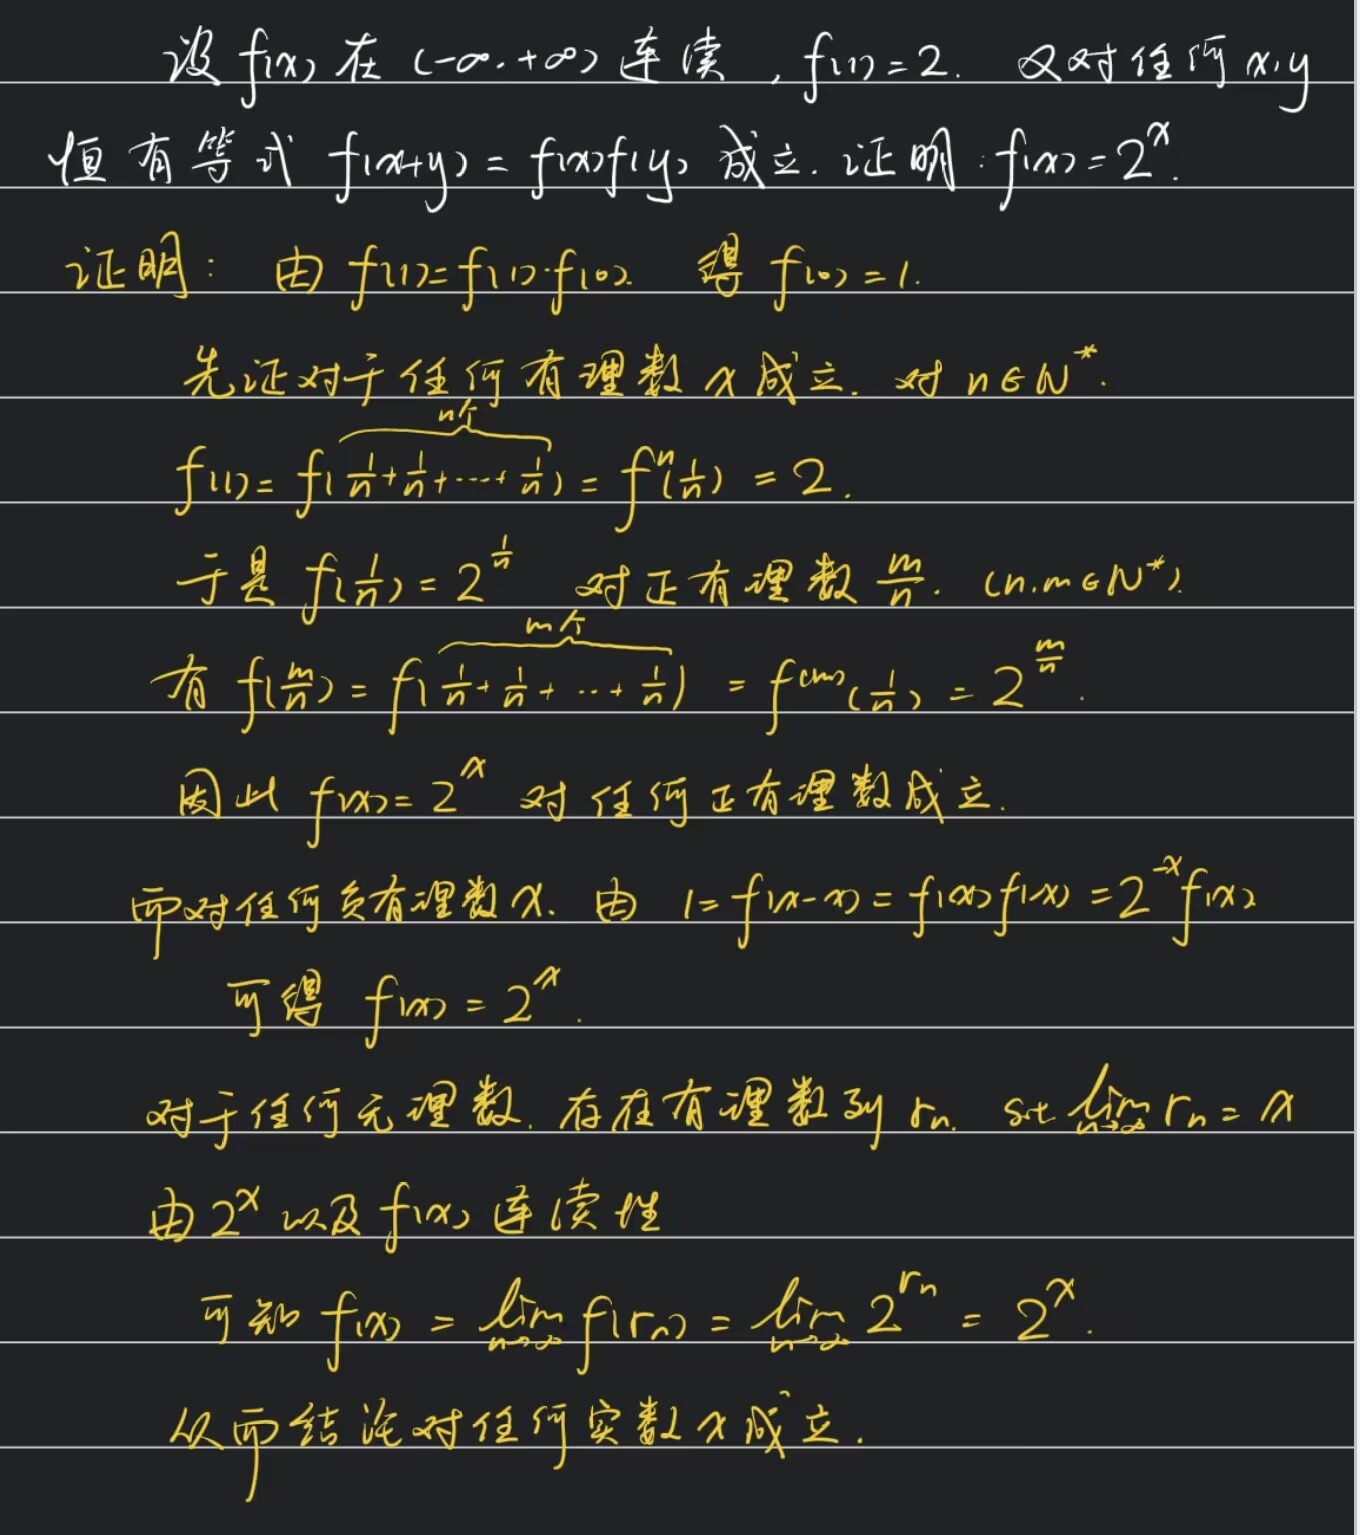 设 f(x) 在 (-∞.+∞) 连续, f(1)=2. 又对任何 x,y
恒有等式 f(x+y)=f(x)f(y) 成立. 证明: f(x)=2^x.
证明: 由 f(1)=f(1)·f(0). 得 f(0)=1.
先证对于任何有理数 x 成立. 对 n∈N*.
n个
f(1)= f(1/n+1/n+····+1/n)= f^n(1/n) = 2.
于是 f(1/n)=2^(1/n) 对正有理数 m/n. (n.m∈N*).
m个
有 f(m/n) = f(1/n+1/n+···+1/n) = f^(m)(1/n) = 2^(m/n).
因此 f(x)=2^x 对任何正有理数成立.
而对任何负有理数 x. 由 1=f(x-x)=f(x)f(-x)=2^-x f(x)
可得 f(x)=2^x.
对于任何无理数. 存在有理数列 rn. s.t lim n→∞ rn = x
由 2^x 以及 f(x) 连续性
可知 f(x) = lim n→∞ f(rn) = lim n→∞ 2^rn = 2^x.
从而结论对任何实数 x 成立.